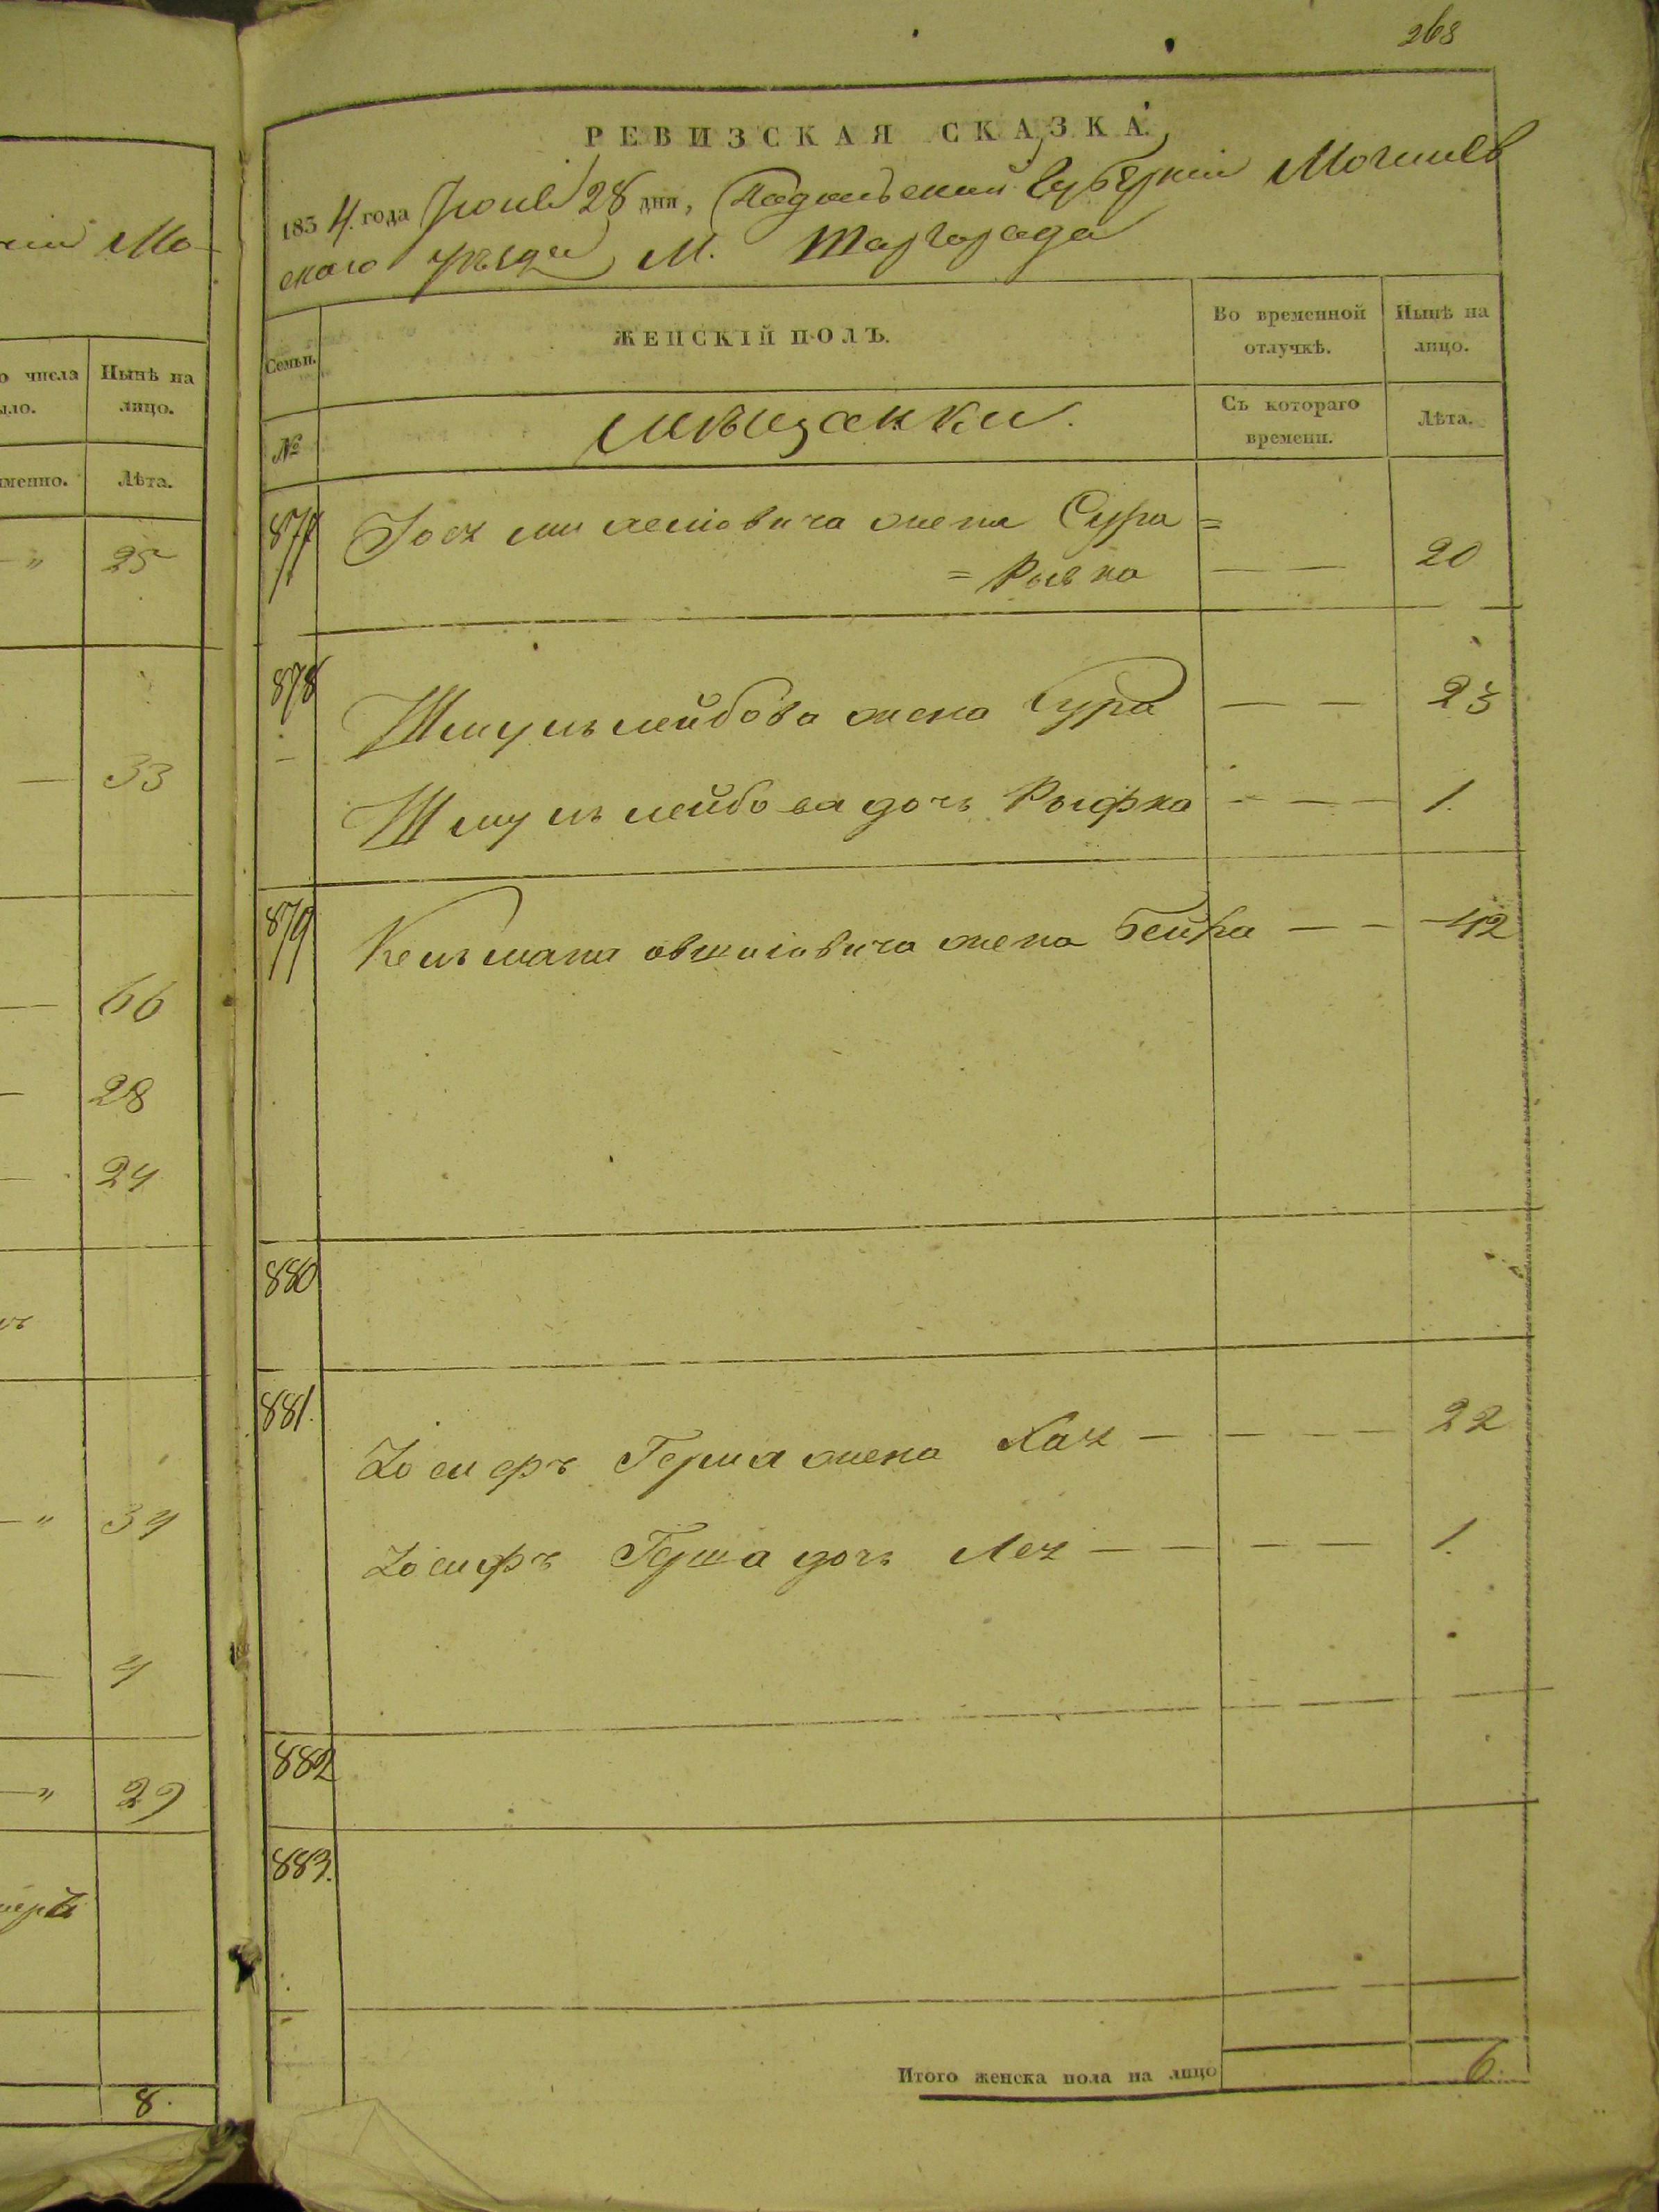 268
РЕВИЗСКАЯ СКАЗКА.
1854 года Июня 28 дня, Подольской Губернии Могилев
скаго уѣзда М. Шаргорода
нии Мо-
Семьи.
ЖЕНСКІЙ ПОЛЪ.
Во временной отлучкѣ.
Нынѣ на лицо.
№
мѣщанки.
Съ котораго времени.
Лѣта.
877 жена Сура =
= Рывка — — 20
878 Шмуль лейбова жена Сура — — 23
Шмуль лейбова дочь Рыфка - — — 1.
879 Кельмана овшиовича жена Бейка — — 42
880
881. Іосифъ Герша жена Хая — — — — 22
Іосифъ Герша дочь Лея — — — — 1.
882
883.
Итого женска пола на лицо 6.
числа
Нынѣ на лицо.
Лѣта.
" 25
— 33
— 66
— 28
— 24
— " 34
— 4
— " 29
8.